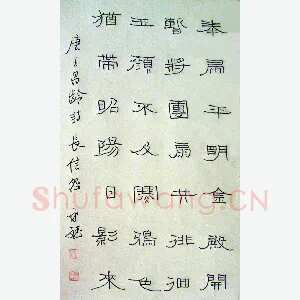 奉帚平明金殿開
暫將團扇共徘徊
玉顏不及寒鴉色
猶帶昭陽日影來
唐王昌齡詩長信怨
Shufawang.CN